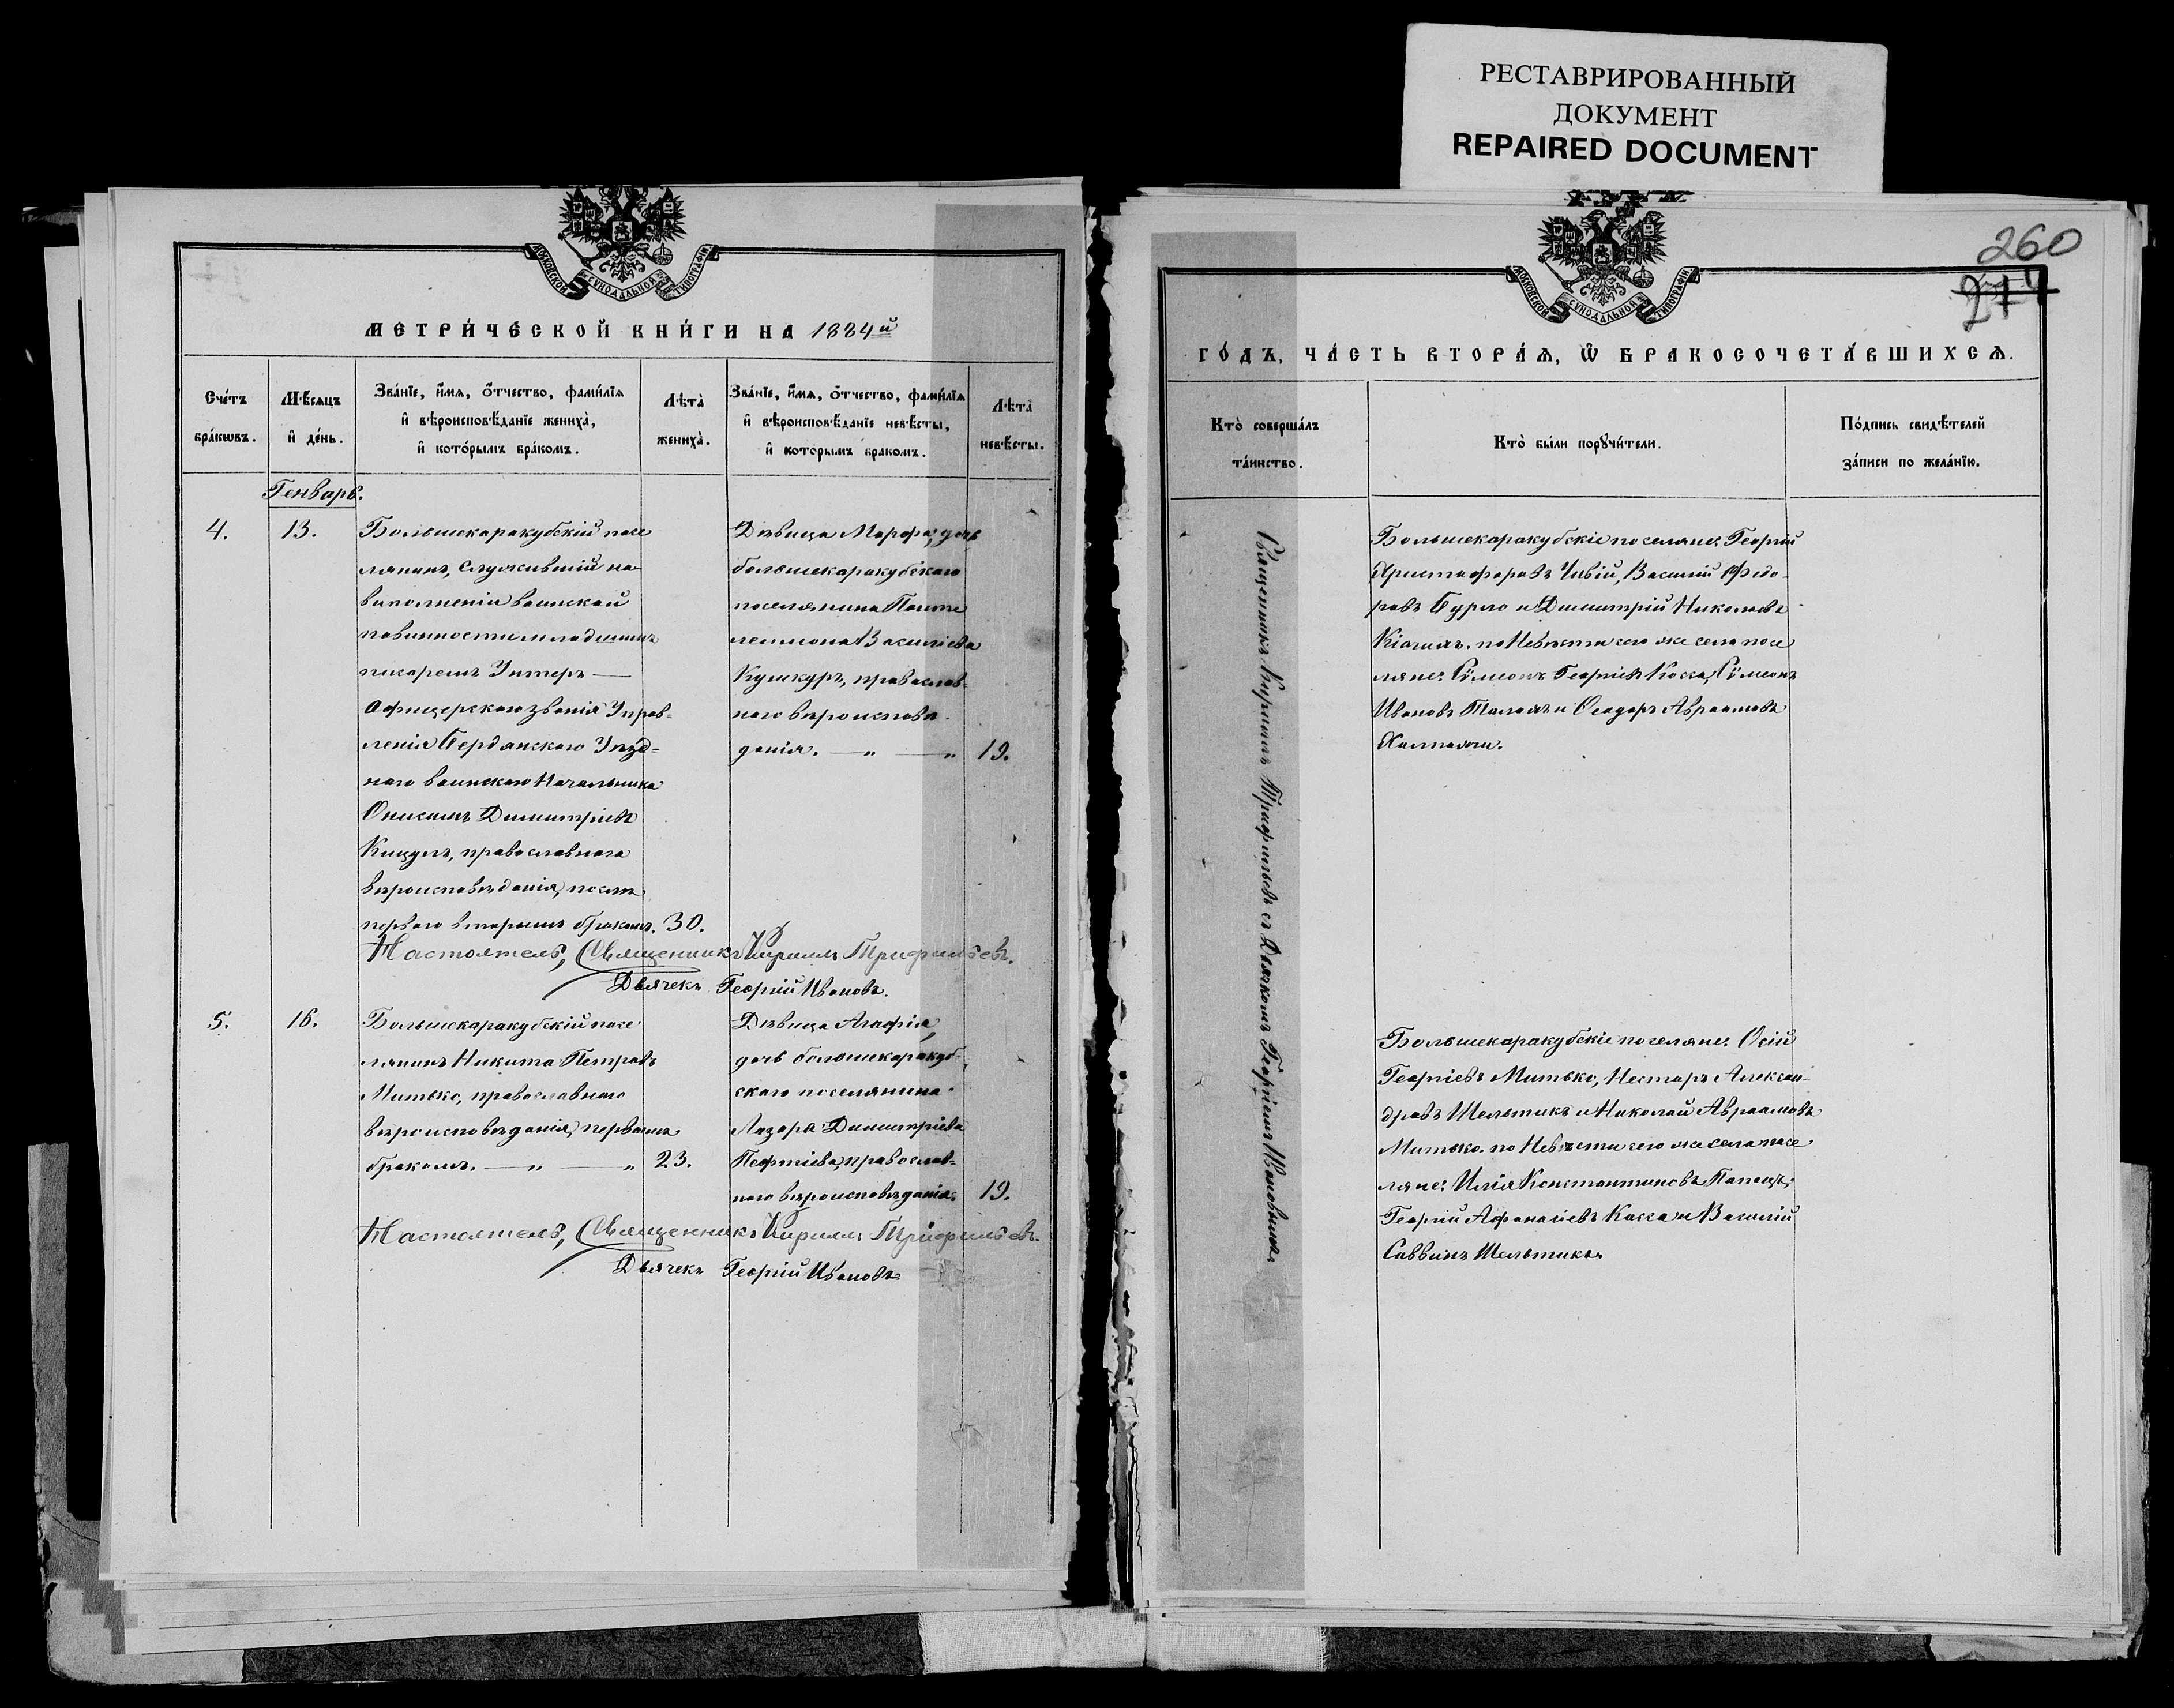 РЕСТАВРИРОВАННЫЙ
ДОКУМЕНТ
REPAIRED DOCUMENT
МОСКОВСКОЙ СѴНОДАЛЬНОЙ ТИПОГРАФІИ
МЕТРИ́ЧЕСКОЙ КНИ́ГИ НА 1884й
Сче́тъ бра́кѡвъ.
Мѣ́сяцъ и҆ де́нь.
Зва́нїе, и҆́мѧ, ѻ҆́тчество, фами́лїѧ
и҆ вѣроисповѣ́данїе жениха̀,
и҆ кото́рымъ бра́комъ.
Лѣта̀ жениха̀.
Зва́нїе, и҆́мѧ, ѻ҆́тчество, фами́лїѧ
и҆ вѣроисповѣ́данїе невѣ́сты,
и҆ кото́рымъ бра́комъ.
Лѣта̀ невѣ́сты.
Генварь.
4.
13.
Большекаракубскій посе
лянинъ, служившій по
выполненіи воинской
повинности младшимъ
писаремъ Унтеръ —
офицерскаго званія Управ-
ленія Бердянскаго Уѣзд-
наго воинскаго Начальника
Онисимъ Димитріевъ
Кицулъ, православнаго
вѣроисповѣданія, послѣ
перваго вторымъ бракомъ. 30.
Дѣвица Марфа, дочь
большекаракубскаго
поселянина Панте
леимона Василіева
Кушкуръ, православ-
наго вѣроисповѣ-
данія. — „ — „ 19.
Настоятель, Священникъ Кириллъ Трифильевъ.
Дьячекъ Георгій Ивановъ.
5.
16.
Большекаракубскій посе
лянинъ Никита Петровъ
Митько, православнаго
вѣроисповѣданія, первымъ
бракомъ. — „ — „ 23.
Дѣвица Агафія,
дочь большекаракуб-
скаго поселянина
Лазара Димитріева
Пефтіева, православ-
наго вѣроисповѣданія. 19.
Настоятель, Священникъ Кириллъ Трифильевъ.
Дьячекъ Георгій Ивановъ
260
МОСКОВСКОЙ СѴНОДАЛЬНОЙ ТИПОГРАФІИ
ГО́ДЪ, ЧА́СТЬ ВТОРА́Ѧ, Ѡ҆ БРАКОСОЧЕТА́ВШИХСѦ.
Кто̀ соверша́лъ
та́инство.
Кто̀ бы́ли порꙋчи́тели.
По́дпись свидѣ́телей
за́писи по жела́нїю.
Священникъ Кириллъ Трифильевъ съ Дьячкомъ Георгіемъ Ивановымъ
Большекаракубскіе поселяне: Георгій
Христофоровъ Чивій, Василій Ѳедо-
ровъ Бурло и Димитрій Николаевъ
по Невѣсти сего же села посе
ляне: Сѵмеонъ Георгіевъ Косса, Сѵмеонъ
Ивановъ и Ѳеодоръ Авраамовъ
Большекаракубскіе поселяне: Осій
Георгіевъ Митько, Несторъ Алексан-
дровъ Шельтикъ и Николай Авраамовъ
Митько. по Невѣсти сего же села посе
ляне: Илія Константиновъ Папацъ,
Георгій Афанасіевъ Косса и Василій
Саввинъ Шельтикъ